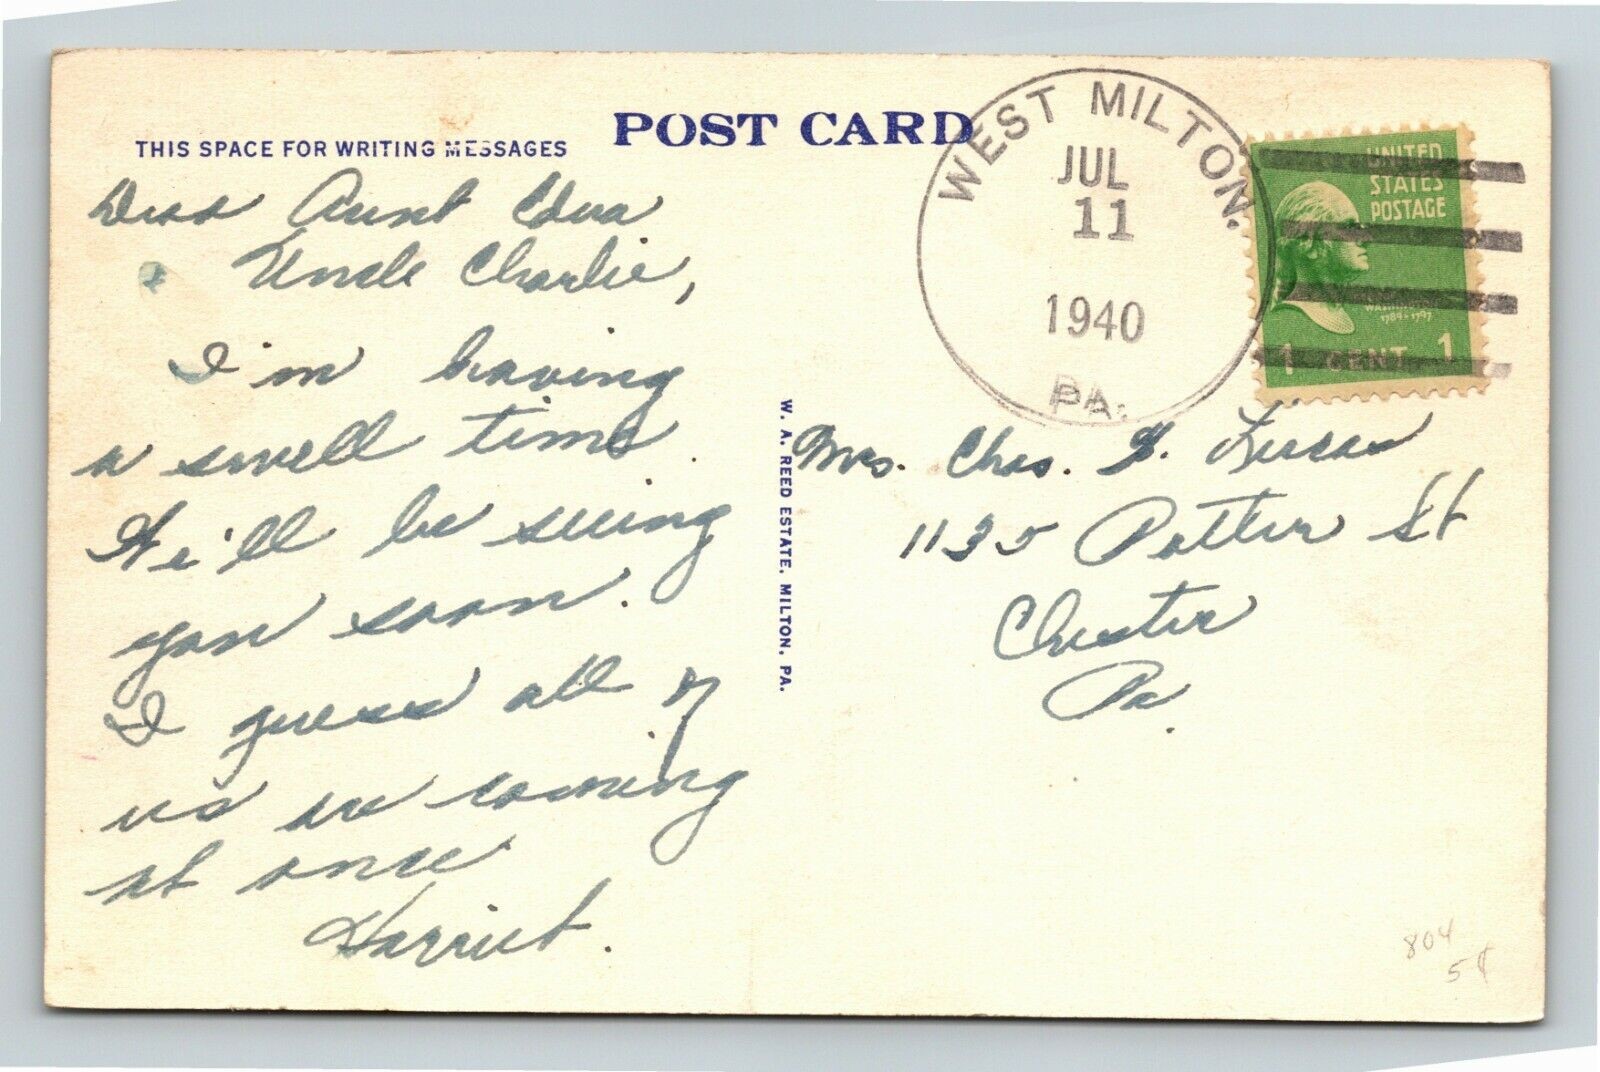 POST CARD
THIS SPACE FOR WRITING MESSAGES
Dear Aunt Edna
Uncle Charlie,
I'm having
a swell time.
We'll be seeing
you soon.
I guess all of
us are coming
at once
Harriet.
W. A. REED ESTATE, MILTON, PA.
WEST MILTON.
JUL
11
1940
PA.
UNITED
STATES
POSTAGE
WASHINGTON
1789-1797
1 CENT 1
Mrs. Chas. G. Lucas
1135 Potter St
Chester
Pa.
804
5¢